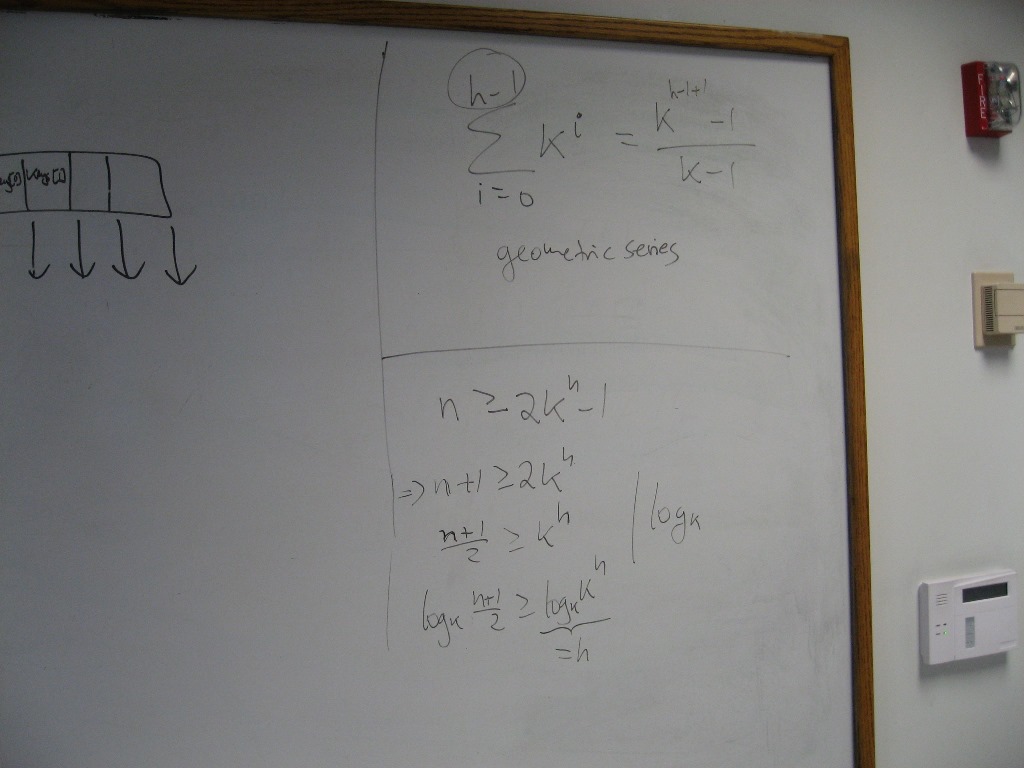 h-1
∑ k^i = (k^(h-1+1) -1)/(k-1)
i=0
geometric series
n ≥ 2k^h -1
=> n+1 ≥ 2k^h
(n+1)/2 ≥ k^h | log_k
log_k (n+1)/2 ≥ log_k k^h
=h
FIRE